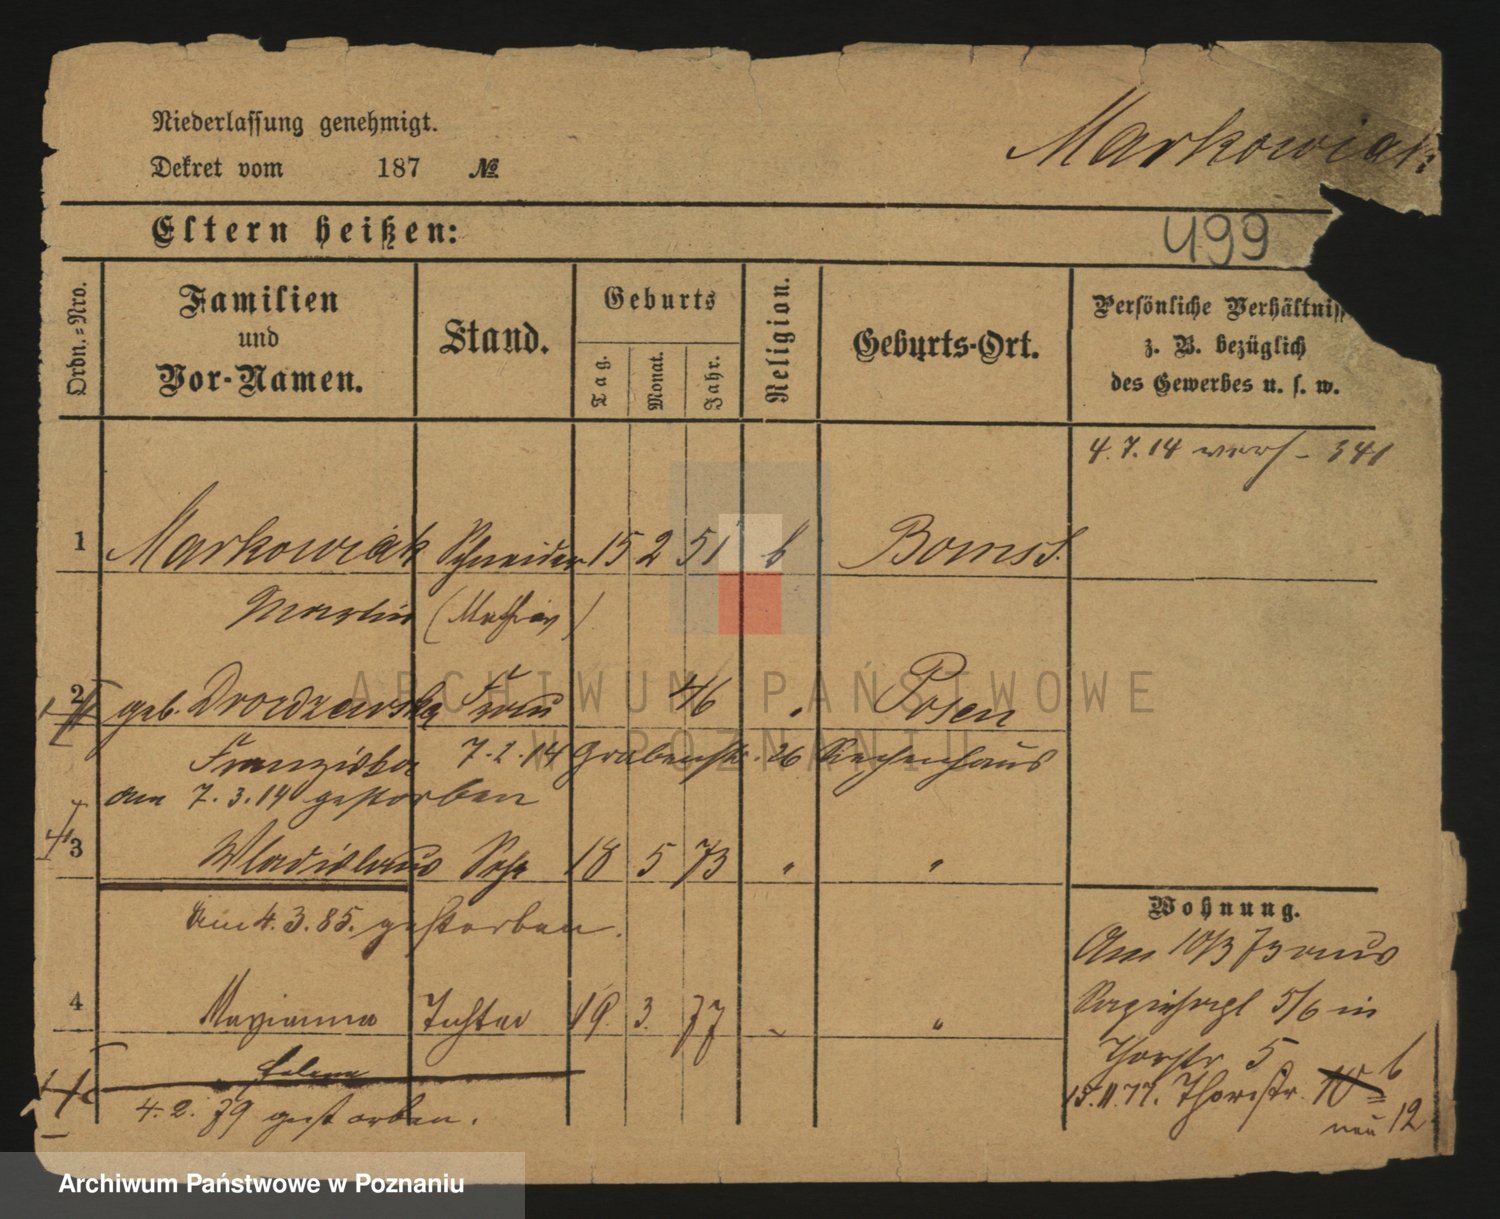 Niederlassung genehmigt.
Dekret vom 187 №
Markowiak
499
Eltern heißen:
Ordn.-Nro.
Familien und Vor-Namen.
Stand.
Geburts
Tag.
Monat.
Jahr.
Religion.
Geburts-Ort.
Persönliche Verhältniss
z. B. bezüglich
des Gewerbes u. s. w.
4.7.14 - 341
1 Markowiak Schneider 15 2 51 k Bomst.
Martin (Mathias)
2 geb. Drowdzewska Frau 46 " Posen
Franziska 7.2.14 Grabenstr. 26 Siechenhaus
am 7.3.14 gestorben
3 Wladislaus Sohn 18 5 73 " "
am 4.3.85. gestorben.
4 Maryanna Tochter 19. 3. 77 " "
Helena
4.2.79 gestorben.
Wohnung.
Am 10/3 73 aus
5/6 in
Thorstr. 5
15.11.77. Thorstr. 10 6
neu 12
ARCHIWUM PAŃSTWOWE
W POZNANIU
Archiwum Państwowe w Poznaniu